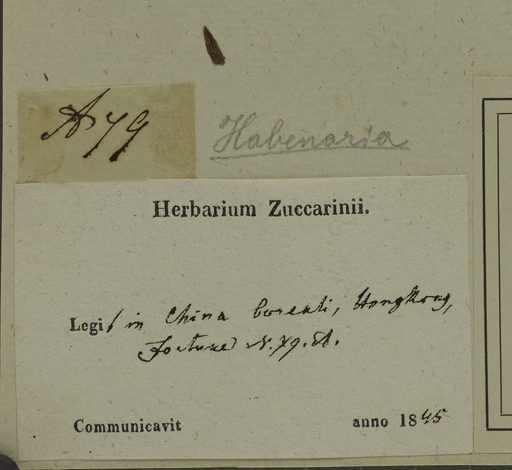 A 79
Habenaria
Herbarium Zuccarinii.
Legit in China boreali, Hongkong,
Fortune N. 79. A.
Communicavit anno 1845